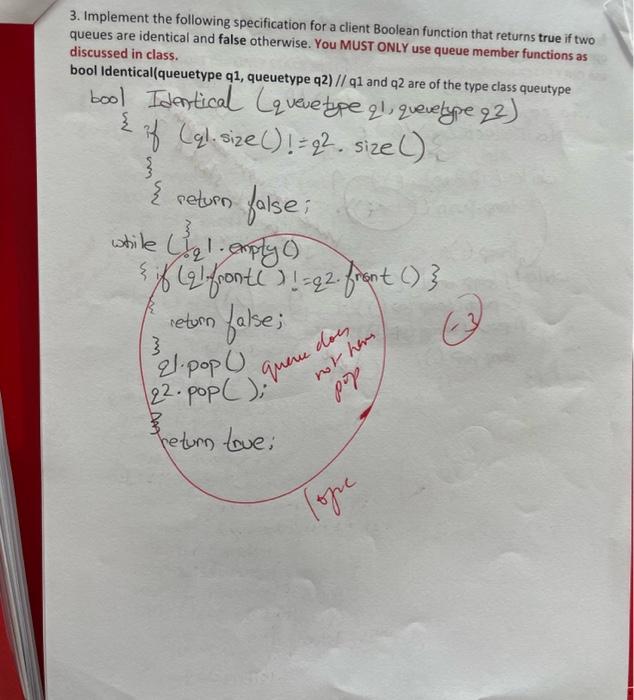 3. Implement the following specification for a client Boolean function that returns true if two
queues are identical and false otherwise. You MUST ONLY use queue member functions as
discussed in class.
bool Identical(queuetype q1, queuetype q2) // q1 and q2 are of the type class queutype
bool Identical (queuetype q1, queuetype q2)
{ if (q1.size() != q2. size()
}
{ return false;
}
while (!q1.empty()
{ if (q1.front() != q2.front() }
{
return false;
}
q1.pop()
q2.pop();
}
return true;
queue does
not have
pop
-3